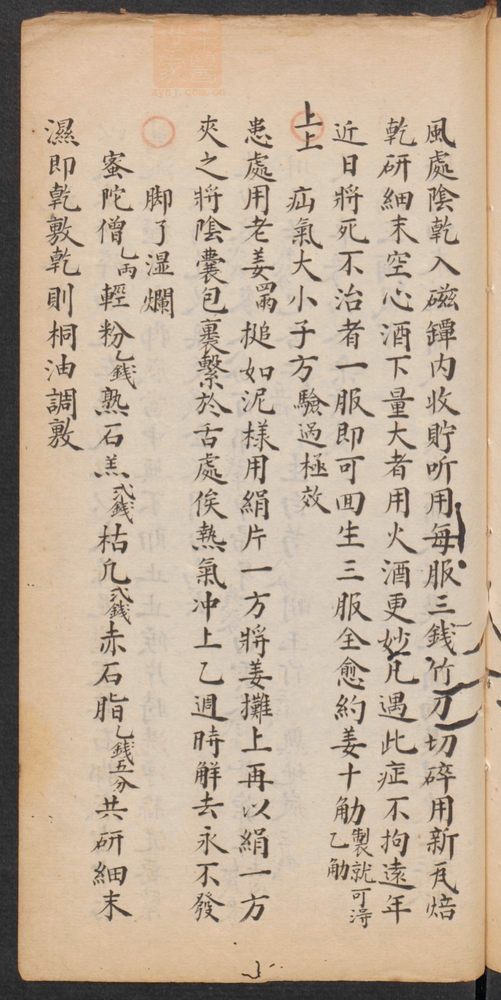 風處陰乾入磁罈内收貯听用每服三錢竹刀切碎用新瓦焙
乾研細末空心酒下量大者用火酒更妙凡遇此症不拘遠年
近日將死不治者一服即可回生三服全愈約姜十觔製就可得乙觔
上上 疝氣大小子方驗過極效
患處用老姜四兩搥如泥様用絹片一方將姜攤上再以絹一方
夾之將陰囊包裹繫於舌處俟熱氣冲上乙週時解去永不發
脚了湿爛
蜜陀僧乙兩輕粉乙錢熟石羔弍錢枯凢弍錢赤石脂乙錢五分共研細末
濕即乾敷乾則桐油調敷